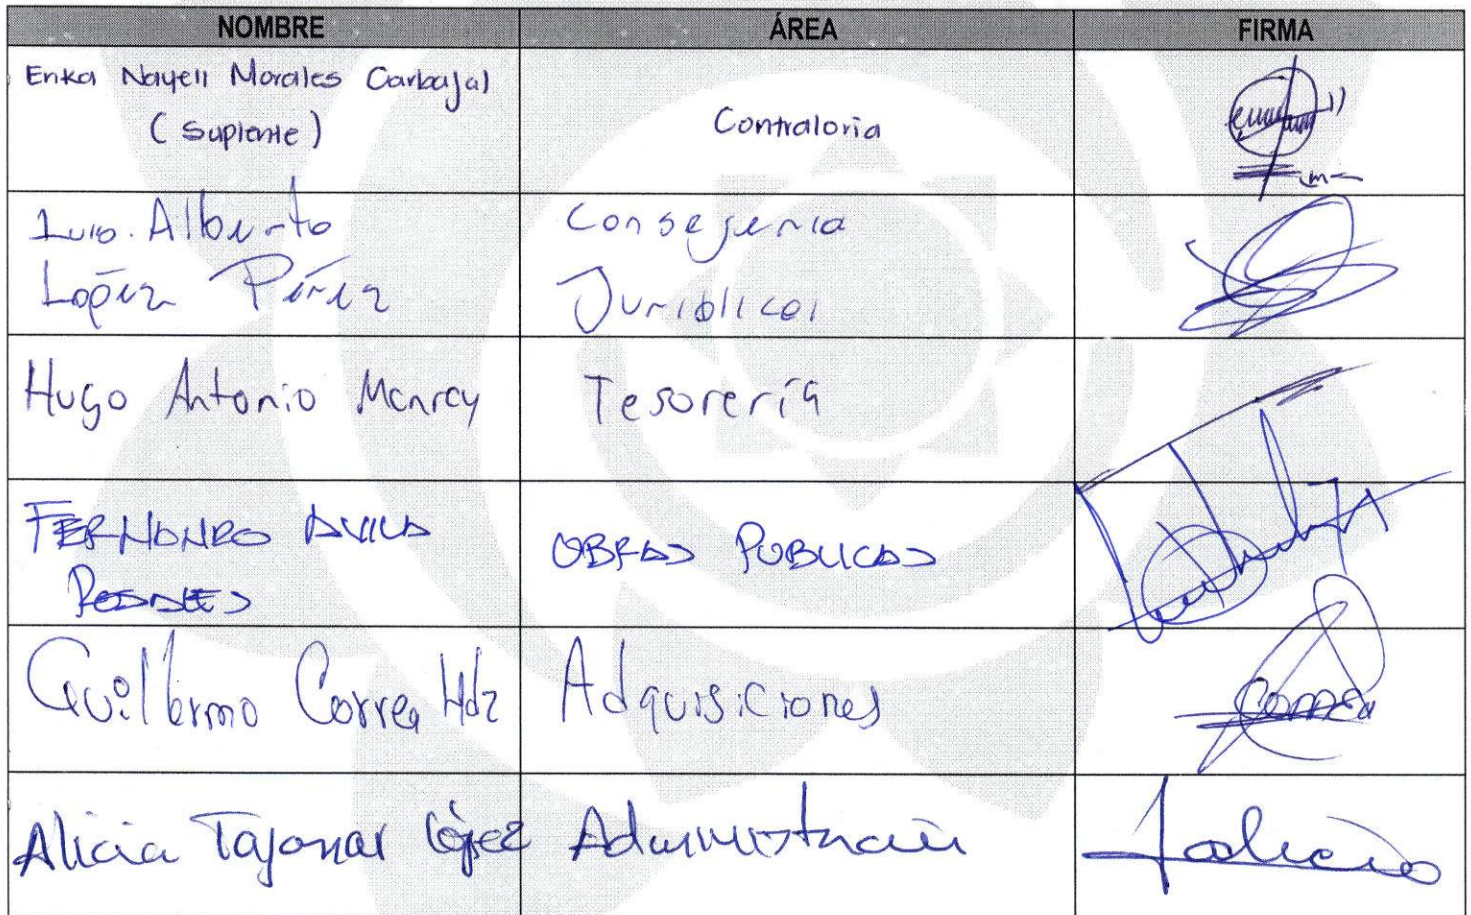 NOMBRE ÁREA FIRMA
Erika Nayeli Morales Carbajal
(Suplente)
Contraloria
Luis. Alberto
López Pérez
Consejeria
Juridica
Hugo Antonio Monroy
Tesorería
FERNANDO AVILA
ROSALES
OBRAS PUBLICAS
Guillermo Correa Hdz
Adquisiciones
Correa
Alicia Tajonar López
Administración